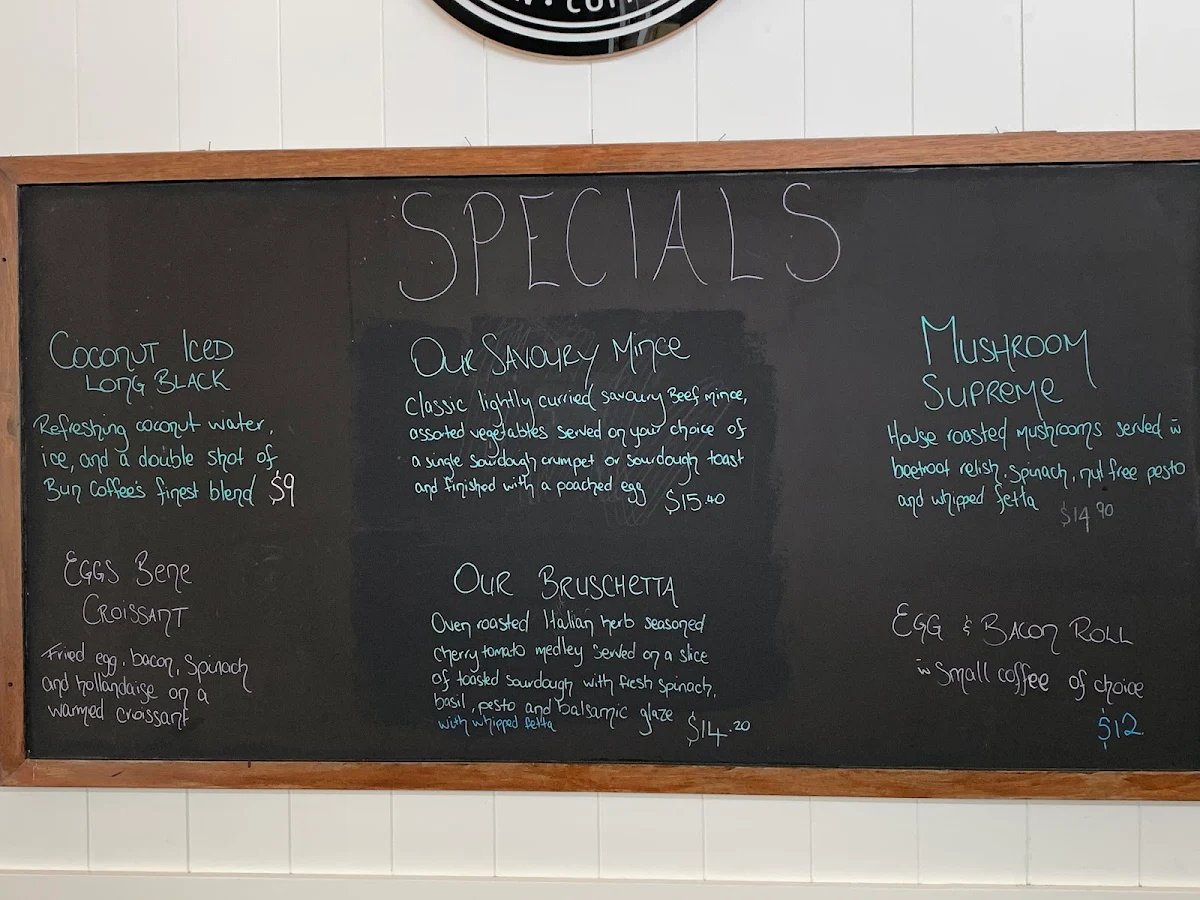 SPECIALS
COCONUT ICED
LONG BLACK
Refreshing coconut water,
ice, and a double shot of
Bun Coffee's finest blend $9
EGGS BENE
CROISSANT
Fried egg, bacon, spinach
and hollandaise on a
warmed croissant
OUR SAVOURY MINCE
Classic lightly curried savoury Beef mince,
assorted vegetables served on your choice of
a single sourdough crumpet or sourdough toast
and finished with a poached egg $15.40
OUR BRUSCHETTA
Oven roasted Italian herb seasoned
cherry tomato medley served on a slice
of toasted sourdough with fresh spinach,
basil, pesto and balsamic glaze
with whipped fetta $14.20
MUSHROOM
SUPREME
House roasted mushrooms served w̄
beetroot relish, spinach, nut free pesto
and whipped fetta $14.90
EGG & BACON ROLL
w̄ small coffee of choice
$12